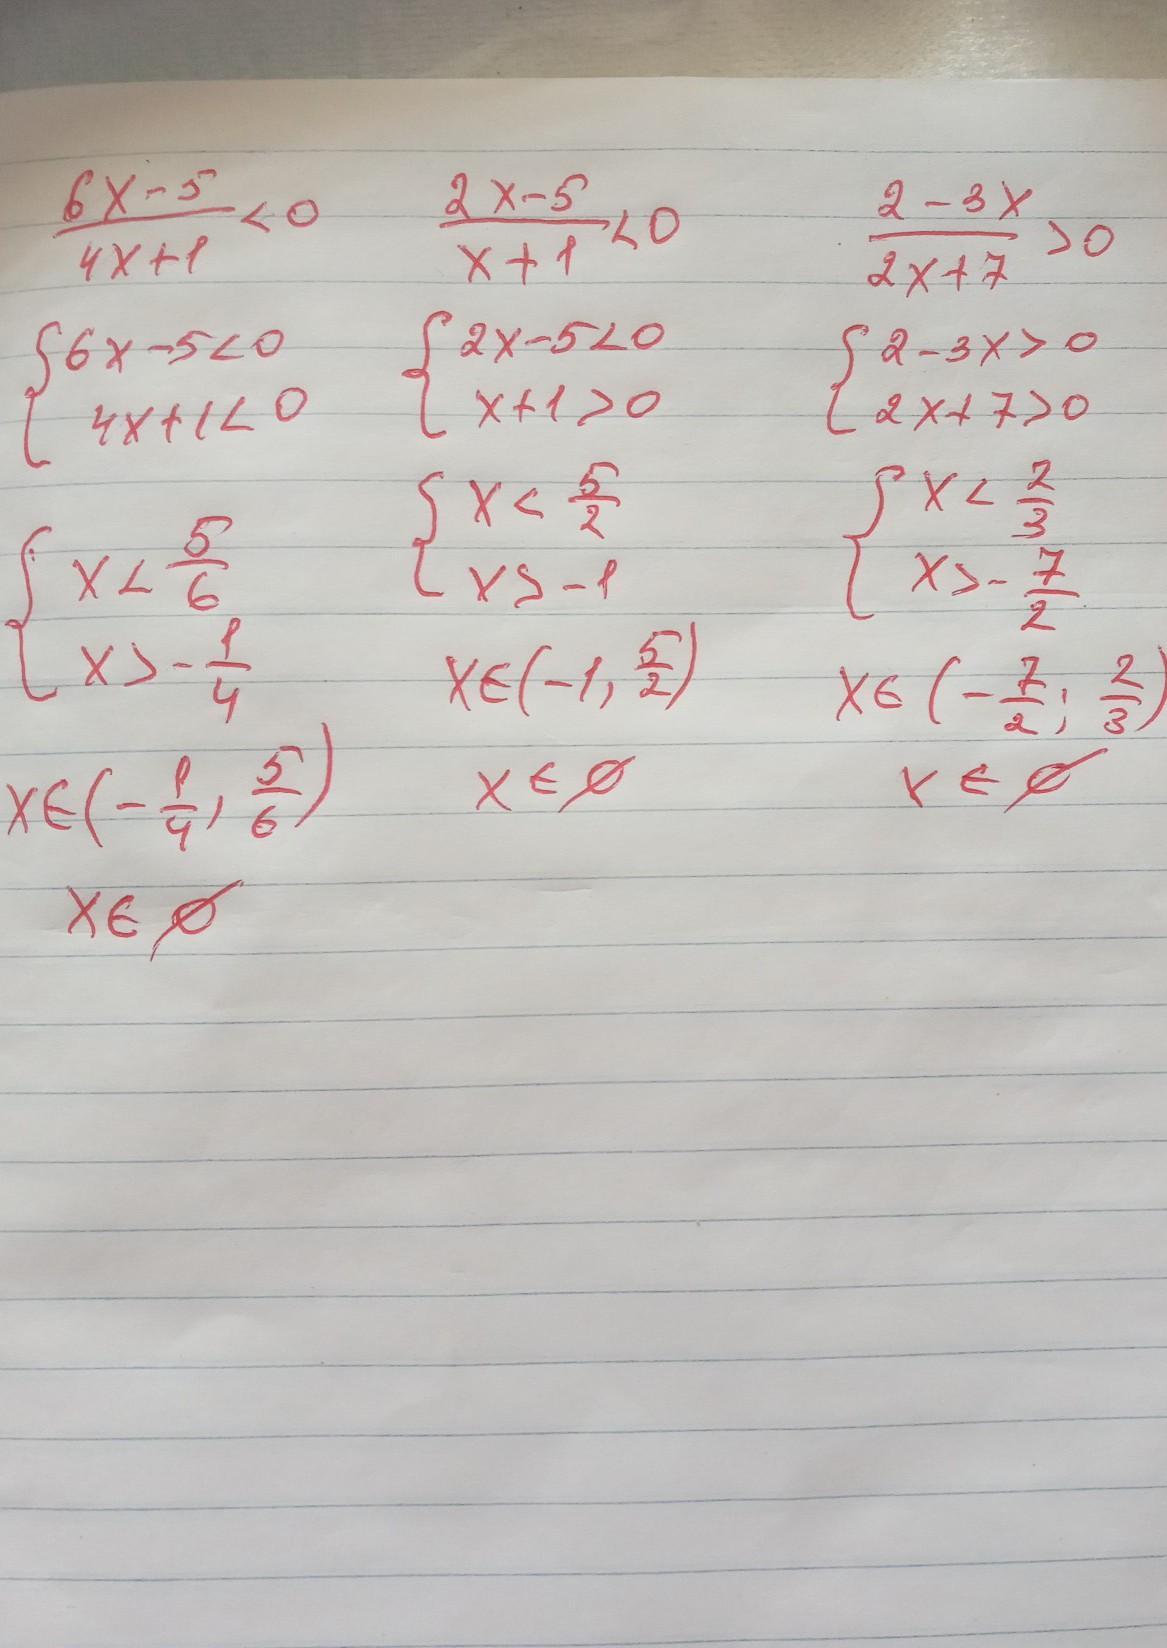 6x-5
4x+1 <0
{6x-5<0
4x+1<0
{x<5/6
x>-1/4
x∈(-1/4, 5/6)
x∈∅
2x-5
x+1 <0
{2x-5<0
x+1>0
{x<5/2
x>-1
x∈(-1, 5/2)
x∈∅
2-3x
2x+7 >0
{2-3x>0
2x+7>0
{x<2/3
x>-7/2
x∈(-7/2; 2/3)
x∈∅